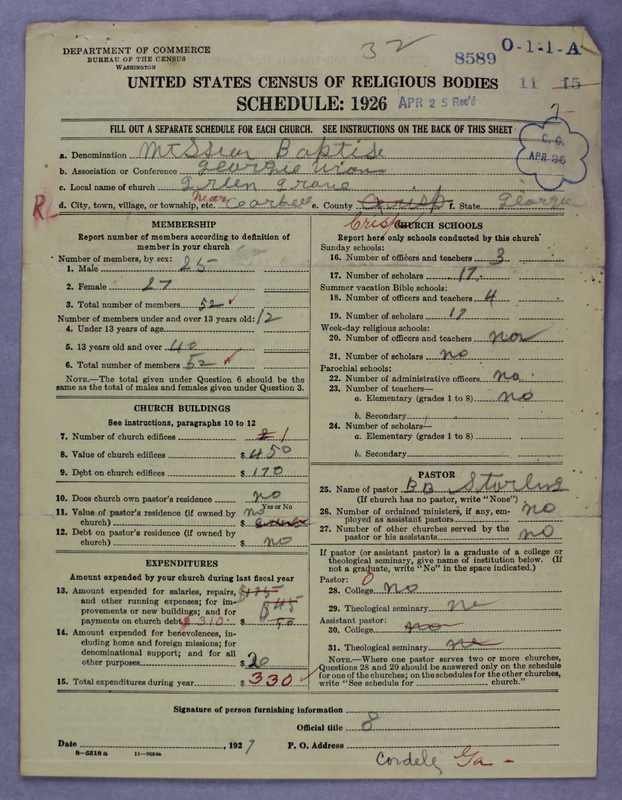 DEPARTMENT OF COMMERCE
BUREAU OF THE CENSUS
WASHINGTON
32
8589
O-1-1-A
11 15
UNITED STATES CENSUS OF RELIGIOUS BODIES
SCHEDULE: 1926
APR 25 Rec'd
FILL OUT A SEPARATE SCHEDULE FOR EACH CHURCH. SEE INSTRUCTIONS ON THE BACK OF THIS SHEET
C. C.
APR 25
a. Denomination
b. Association or Conference
c. Local name of church Green Grove
R d. City, town, village, or township, etc. Near e. County Crisp f. State Georgia
Crisp
MEMBERSHIP
Report number of members according to definition of member in your church
Number of members, by sex:
1. Male 25
2. Female 27
3. Total number of members 52
Number of members under and over 13 years old: 12
4. Under 13 years of age
5. 13 years old and over 40
6. Total number of members 52
NOTE.—The total given under Question 6 should be the
same as the total of males and females given under Question 3.
CHURCH BUILDINGS
See instructions, paragraphs 10 to 12
7. Number of church edifices 2 1
8. Value of church edifices $ 450
9. Debt on church edifices $ 170
10. Does church own pastor's residence no
Yes or No
11. Value of pastor's residence (if owned by church) $ no
12. Debt on pastor's residence (if owned by church) $ no
EXPENDITURES
Amount expended by your church during last fiscal year
13. Amount expended for salaries, repairs,
and other running expenses; for im-
provements or new buildings; and for
payments on church debt $310. $
14. Amount expended for benevolences, in-
cluding home and foreign missions; for
denominational support; and for all
other purposes $ 20
15. Total expenditures during year $ 330
CHURCH SCHOOLS
Report here only schools conducted by this church
Sunday schools:
16. Number of officers and teachers 3
17. Number of scholars 17
Summer vacation Bible schools:
18. Number of officers and teachers 4
19. Number of scholars 17
Week-day religious schools:
20. Number of officers and teachers
21. Number of scholars no
Parochial schools:
22. Number of administrative officers no
23. Number of teachers—
a. Elementary (grades 1 to 8) no
b. Secondary
24. Number of scholars—
a. Elementary (grades 1 to 8)
b. Secondary
PASTOR
25. Name of pastor BB
(If church has no pastor, write "None")
26. Number of ordained ministers, if any, em-
ployed as assistant pastors no
27. Number of other churches served by the
pastor or his assistants no
If pastor (or assistant pastor) is a graduate of a college or
theological seminary, give name of institution below. (If
not a graduate, write "No" in the space indicated.)
Pastor: 0
28. College no
29. Theological seminary
Assistant pastor:
30. College no
31. Theological seminary
NOTE.—Where one pastor serves two or more churches,
Questions 28 and 29 should be answered only on the schedule
for one of the churches; on the schedules for the other churches,
write "See schedule for church."
Signature of person furnishing information
Official title 8
Date , 1927 P. O. Address
8—5518a 11—9054a
Cordele Ga -